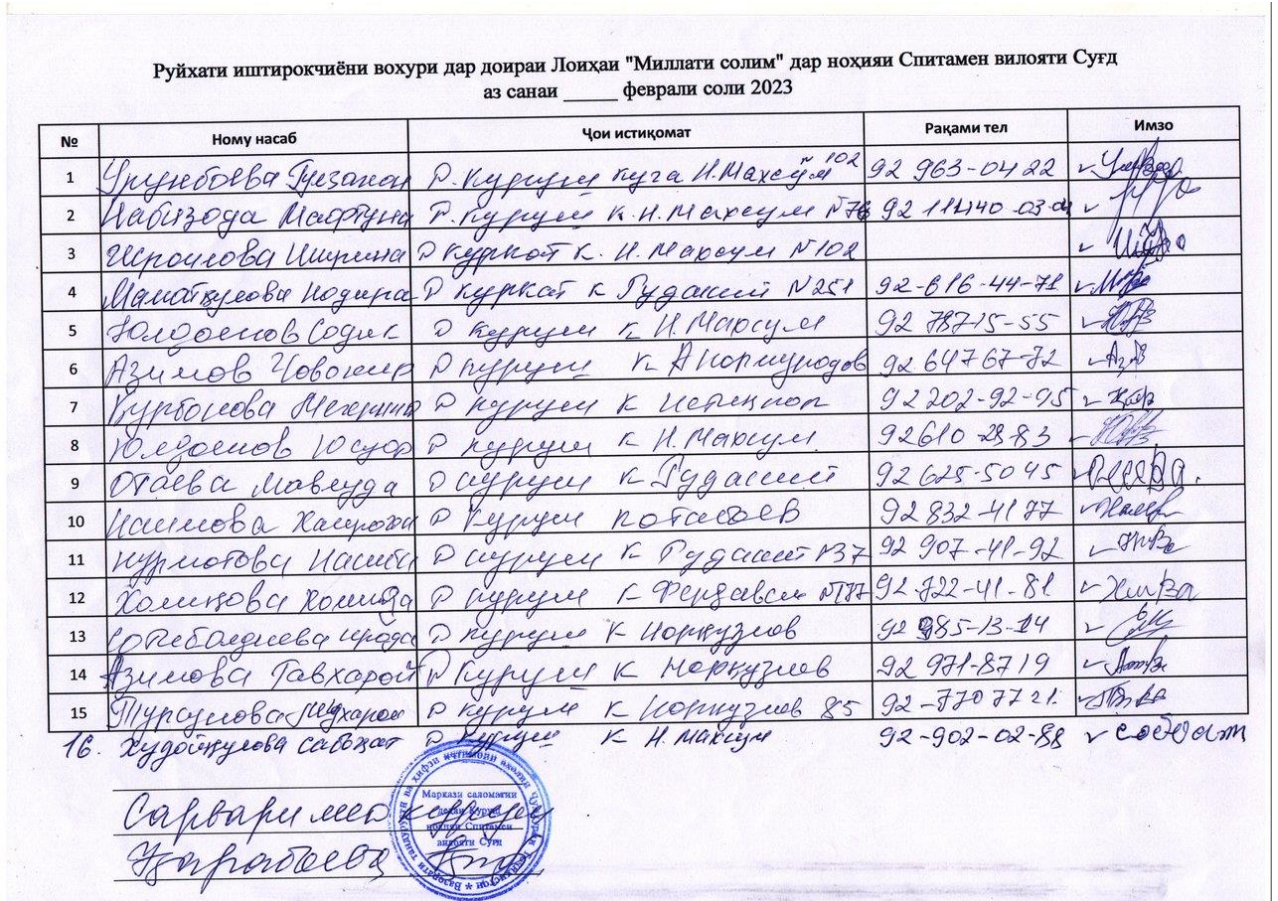 Руйхати иштирокчиёни вохури дар доираи Лоиҳаи "Миллати солим" дар ноҳияи Спитамен вилояти Суғд
аз санаи ______ феврали соли 2023
№ Ному насаб Ҷои истиқомат Рақами тел Имзо
1 Урунбоева Гулзахон Д. Куруш куча Н. Махсум 102 92 963-04 22
2 Набизода Мафтуна Д. Куруш К. Н. Махсум N76 92
3 Исроилова Ширина Д Куркат К. Н. Махсум N102
4 Маматкулова Нодира Д Куркат К Рудаки N251 92-616-44-71
5 Юлдошов Содик Д Куруш К Н. Махсум 92 787-15-55
6 Азимов Ҷовохир Д Куруш К А Нормуродов 92 64767-72
7 Курбонова Мехрина Д Куруш К Истиқлол 92 202-92-95
8 Юлдошов Юсуф Д Куруш К Н. Махсум 92610-2883
9 Отаева Мавлуда Д Куруш К Рудаки 92 625-5045
10 Наимова Д Куруш 92 832-4177
11 Нурматова Д Куруш К Рудаки 137 92 907-41-92
12 Холиқова Холида Д Куруш К Фирдавси N177 92-722-41-81
13 Д Куруш К Норкузиев 92 985-13-14
14 Азимова Гавхарой Д Куруш К Норкузиев 92 971-8719
15 Турсунова Д Куруш К Норкузиев 85 92-7707721
16. Худойқулова Сабоҳат Д Куруш К Н. Махсум 92-902-02-88 Сабоҳат
Сарвари
Маркази саломатии
деҳаи Куруш
ноҳияи Спитамен
вилояти Суғд